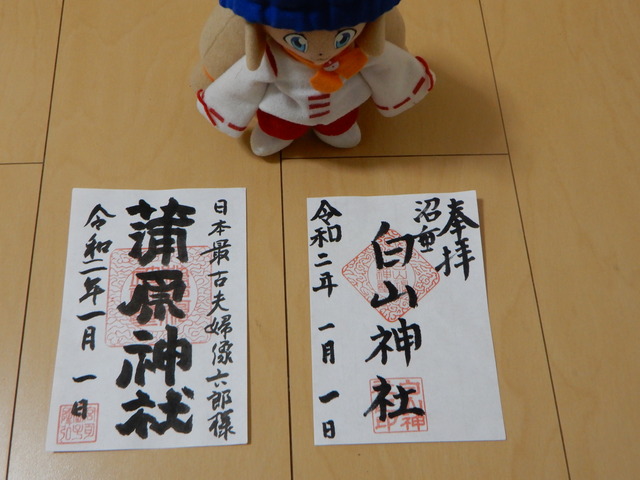 日本最古夫婦像六郎様
蒲原神社
令和二年一月一日
奉拝
沼垂
白山神社
令和二年 一月 一日